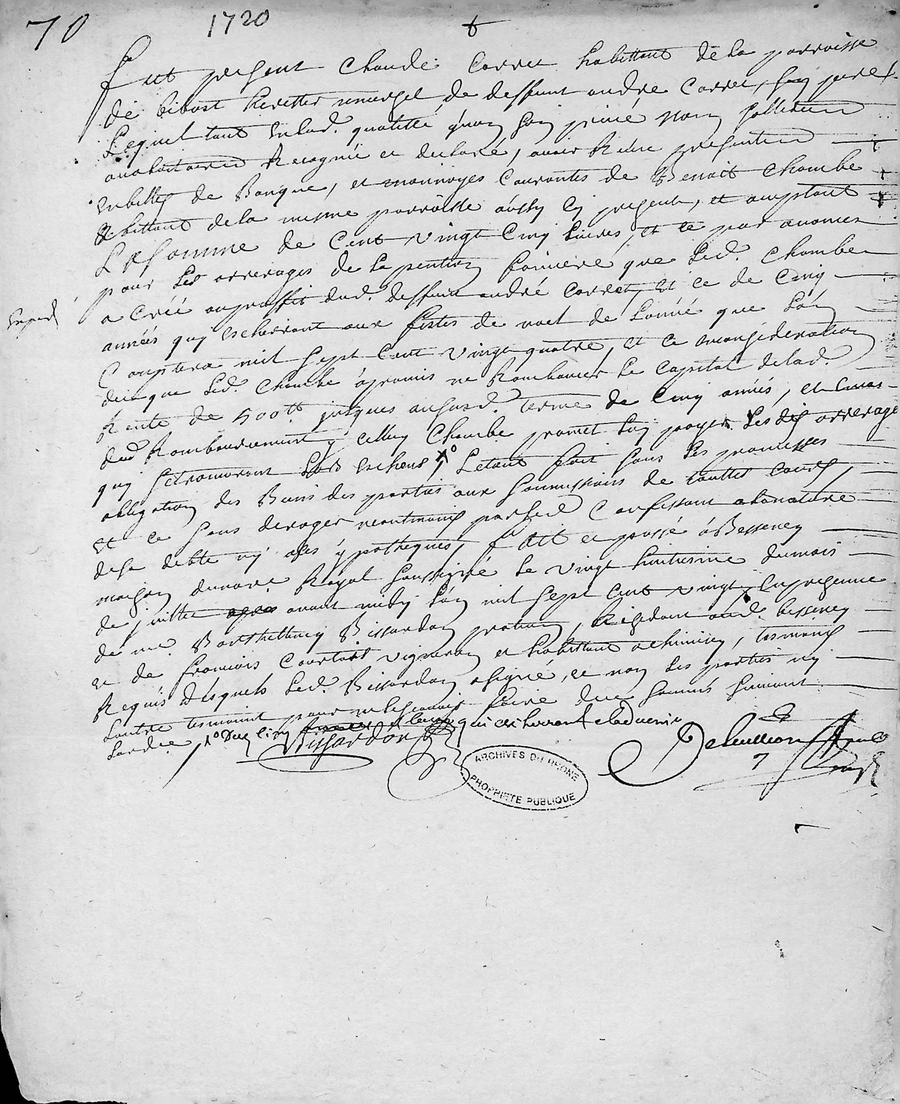 70 1720
fut present Claude Carret habittant de la parroisse
de Bibost heretier universel de deffunt andré Carret, son pere
Lequel tant enlad. quallité qu'en son privé nom
Recognu et declaré, avoir Receu presentem
en billets de Banque, et monnoyes Courantes de Benoit Chambe
habittant dela mesme parroisse aussy cy present, et acceptant
La Somme de Cent vingt Cinq livres, et ce par avance
pour les arrerages de la pention fonciere que led. Chambe
a Créé au proffit dud. deffunt andré Carret, et ce de Cinq
années quy escherront aux festes de noel de l'année que l'on
Comptera mil sept Cent vingt quatre, et ce en consideration
de ce que led. Chambe a promis ne Rembourcer le Capital de lad.
Rente de 500tt jusques aud. terme de Cinq années, et en cas
dud. Rembourcement ycelluy Chambe promet luy payer Les arrerages
quy se trouveront Lors escheus Le tout fait sous les promesses
obligation des Biens des parties aux soumissions de touttes Cours,
et ce sans deroger neantmoins par led. Confessant a la nature
de sa debte ny a ses ypotheques, fait et passé à Bessenay
maison du notaire Royal soussigné le vingt huitiesme du mois
de juillet avant midy l'an mil sept Cent vingt, en presence
de me Barthellemy Bissardon praticien, Residant aud. Bessenay
et de francois vigneron et habittant tesmoins
Requis Desquels led. Bissardon a signé et non les parties ny
L'autre tesmoin pour ne le scavoir faire de ce sommés suivant
L'ordce
Bissardon
ARCHIVES DU RHONE
PROPRIETE PUBLIQUE